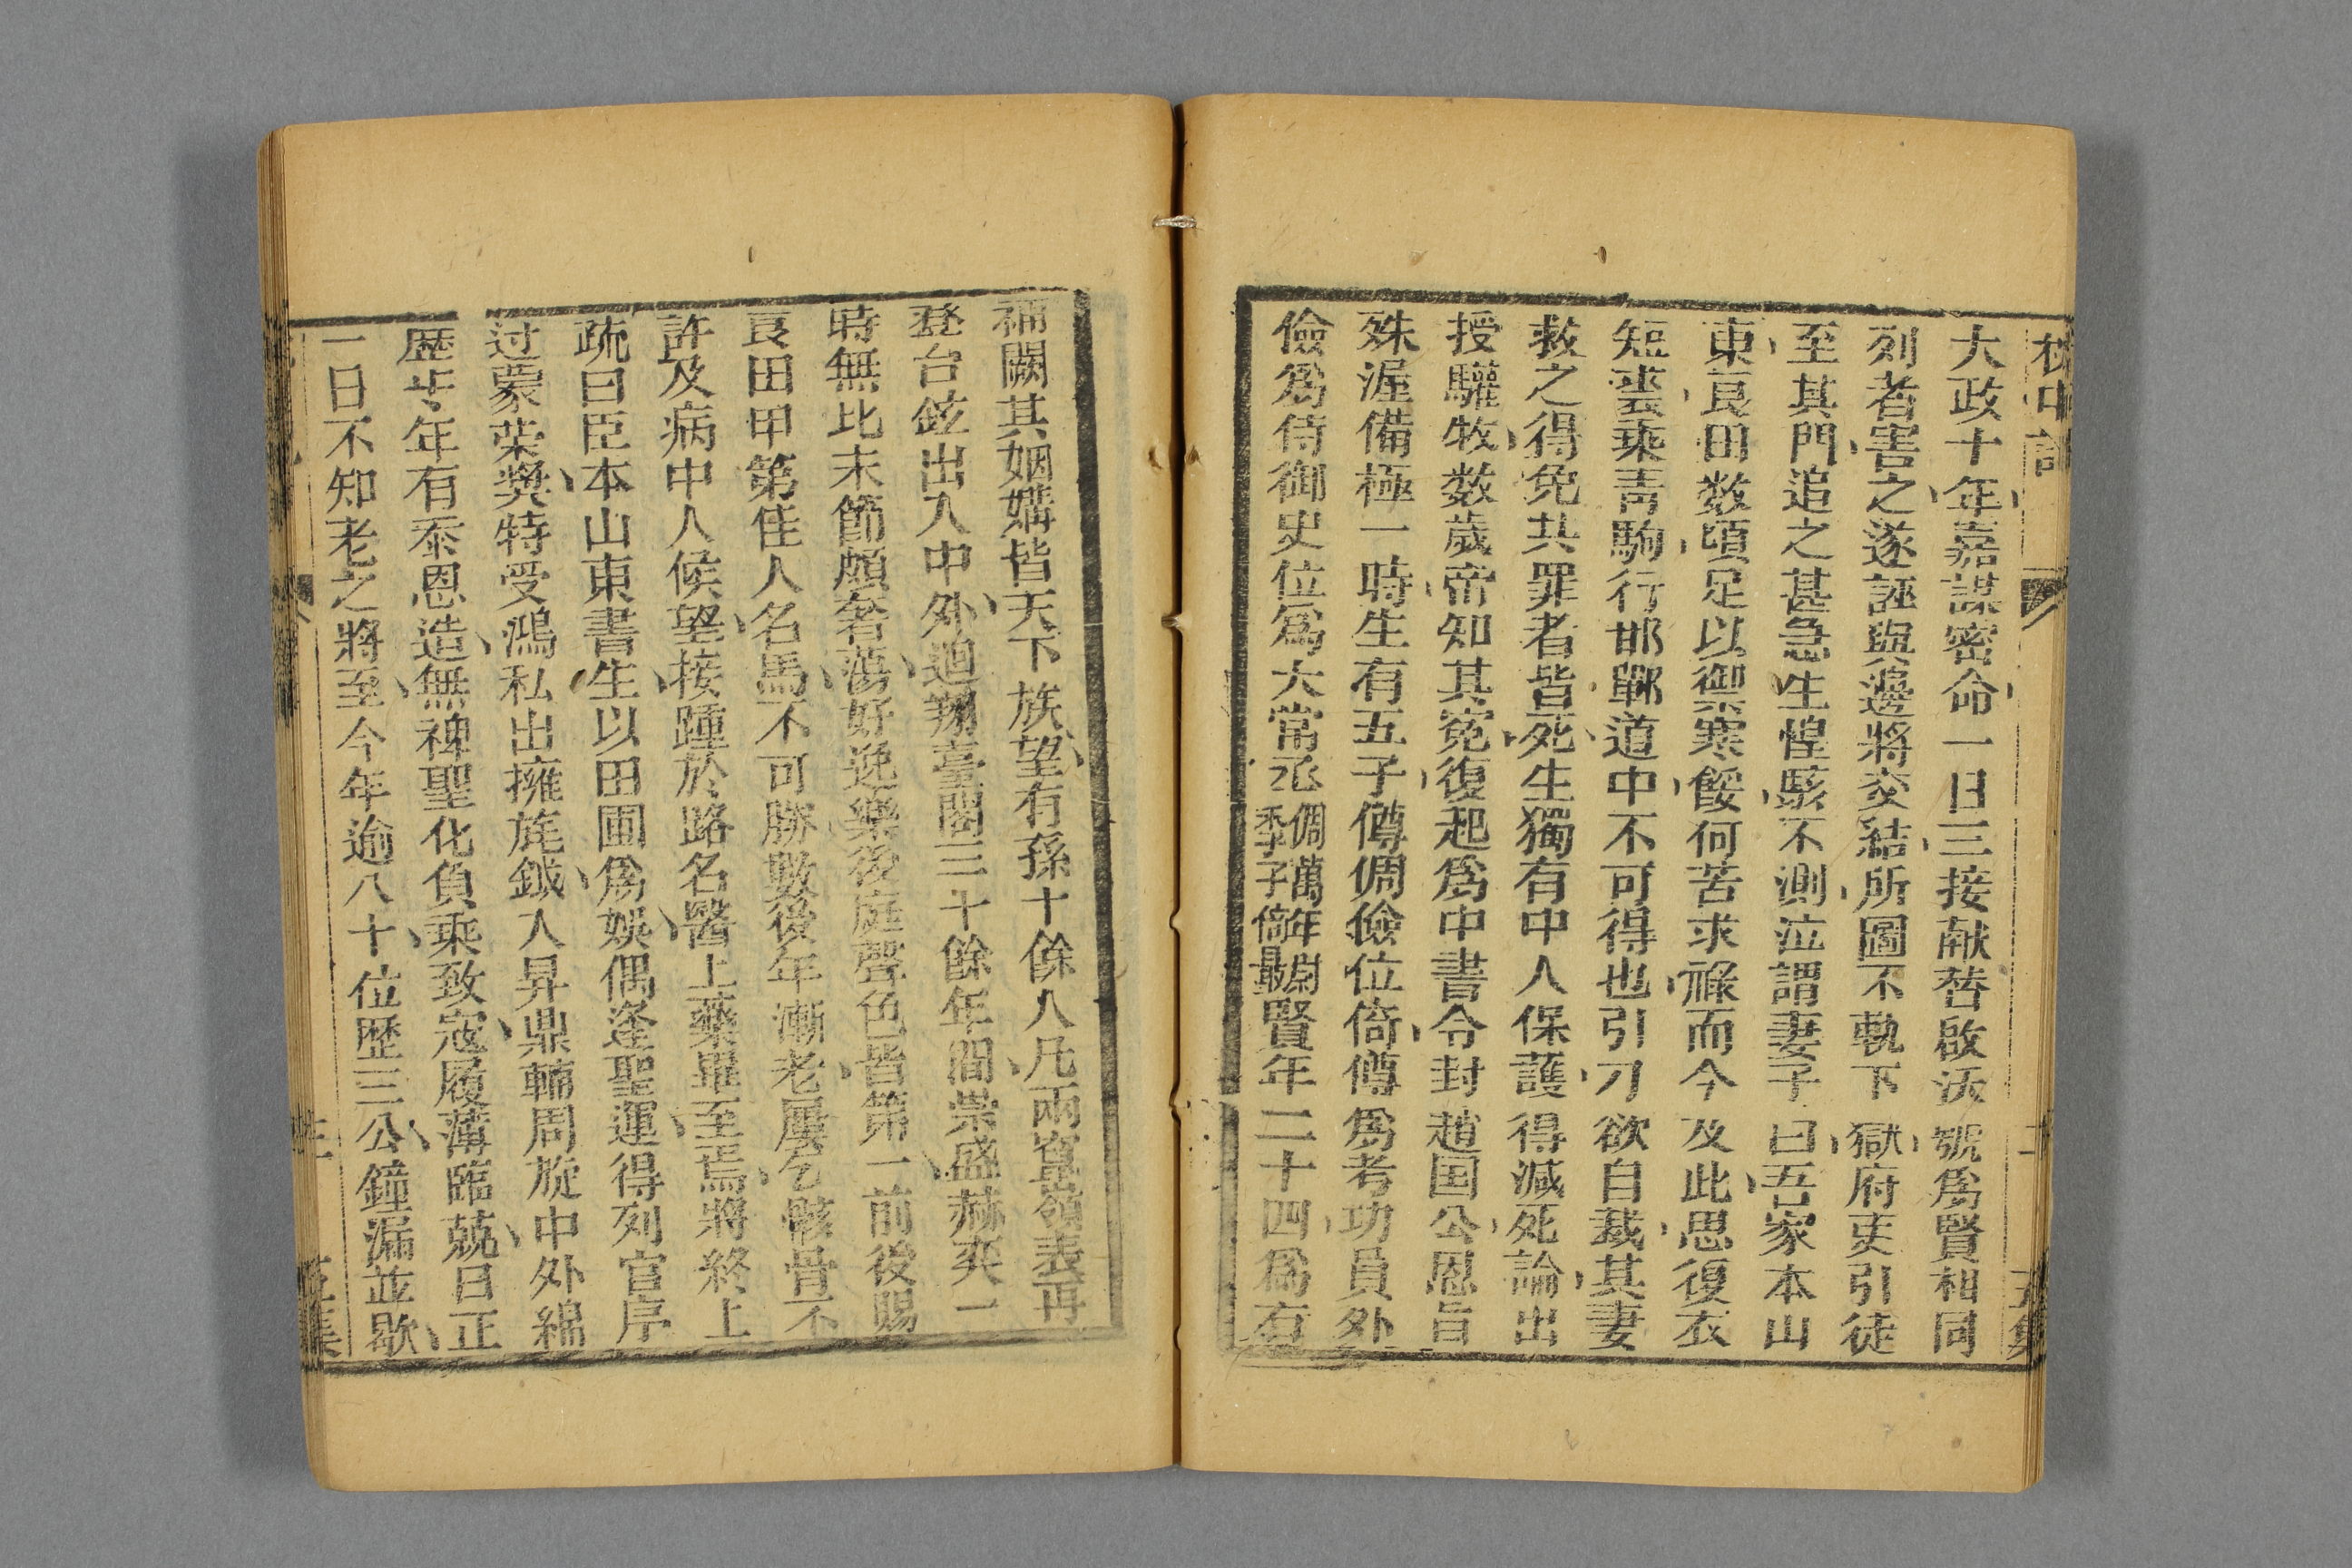 枕中記
大政十年嘉謀密命一日三接献替啟沃號爲賢相同
列者害之遂誣與邊將交結所圖不軌下獄府吏引徒
至其門追之甚急生惶駭不測泣謂妻子曰吾家本山
東良田数頃足以御寒餒何苦求祿而今及此思復衣
短裘乘青駒行邯鄲道中不可得也引刀欲自裁其妻
救之得免共罪者皆死生獨有中人保護得減死論出
授驩牧数歲帝知其寃復起爲中書令封趙国公恩旨
殊渥備極一時生有五子僔倜儉位倚僔爲考功員外
儉爲侍御史位爲大常丞倜萬年尉季子倚最賢年二十四爲右
補闕其姻媾皆天下族望有孫十餘人凡兩竄嶺表再
登台鉉出入中外迴翔臺閣三十餘年間崇盛赫奕一
時無比末節頗奢蕩好逸樂後庭聲色皆第一前後賜
良田甲第佳人名馬不可勝數後年漸老屢乞骸骨不
許及病中人候望接踵於路名醫上藥畢至焉將終上
疏曰臣本山東書生以田圃爲娛偶逢聖運得列官序
过蒙荣奬特受鴻私出擁旄鉞入昇鼎輔周旋中外綿
歷年有忝恩造無裨聖化負乘致寇履薄臨兢日正
一日不知老之將至今年逾八十位歷三公鐘漏並歇